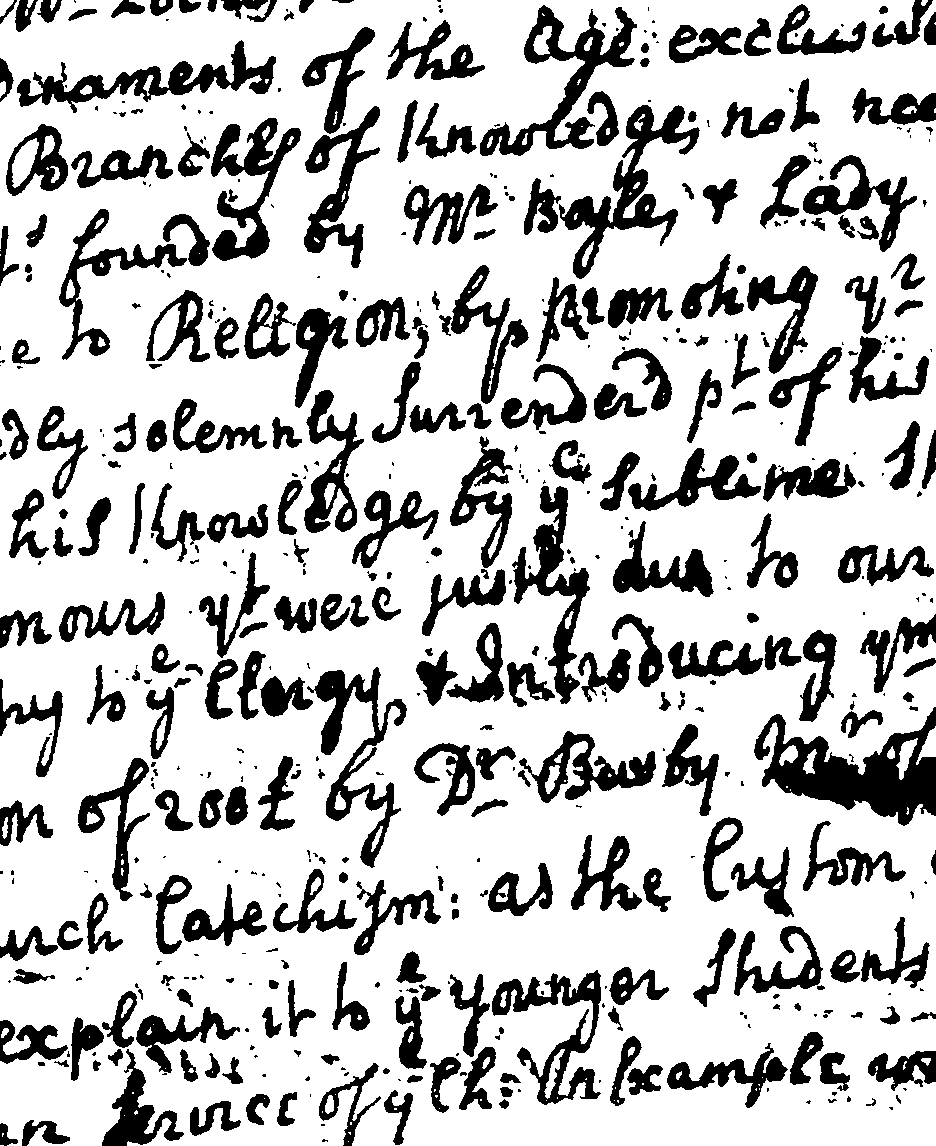 Mr Locke,
Ornaments of the Age: exclusive
Branches of Knowledge; not nee
t:s founded by Mr Boyle, & Lady
e to Religion, by promoting yr
dly solemnly Surrenderd pt of his
his Knowledge, by ye Sublime
onours yt were justly due to our
try to ye Clergy, & Introducing ym
on of 200£ by Dr Busby Mr of
urch Catechism: as the Custom
explain it to ye younger Students
an Service of ye Ch: An Example wo